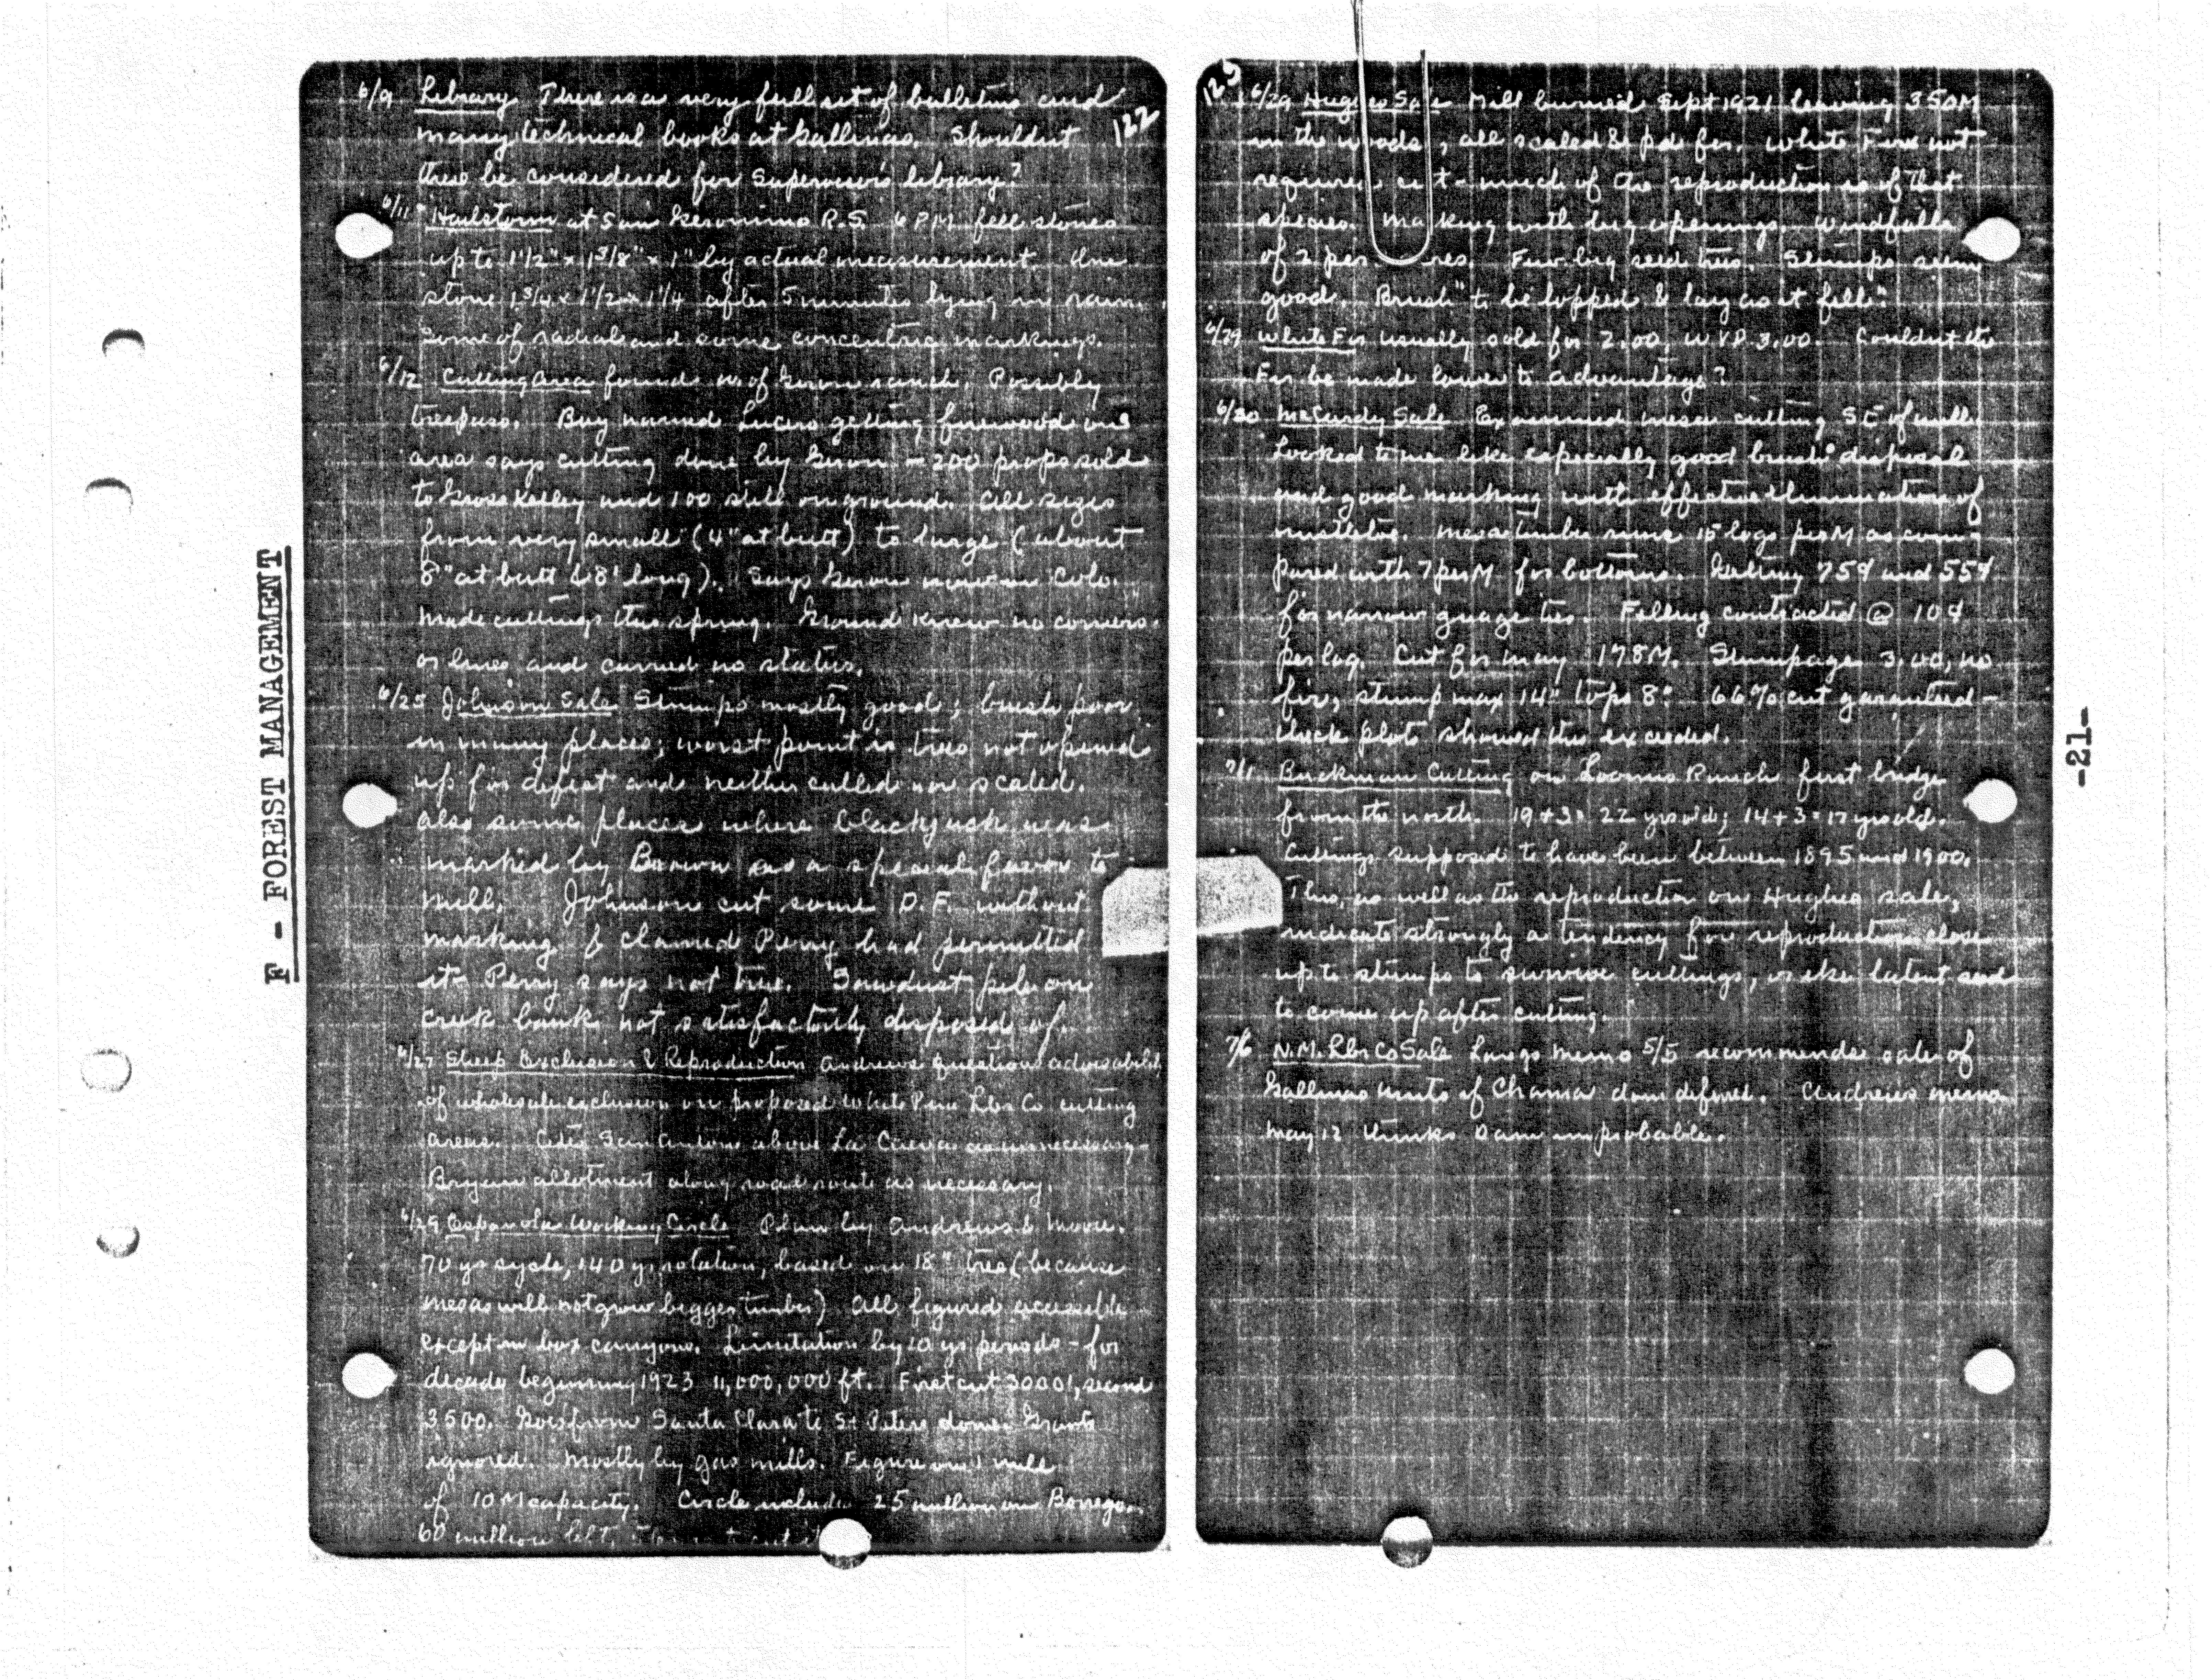 F - FOREST MANAGEMENT
122
6/9 Library There is a very full set of bulletins and
many technical books at Gallinas. Shouldnt
these be considered for Supervisor's library?
6/11 Hailstorm at San Geronimo R.S. 6 P.M. fell stones
up to 1 1/2" x 1 3/8" x 1" by actual measurement. One
stone 1 3/4 x 1 1/2 x 1 1/4 after 5 minutes lying in rain.
Some of radial and some concentric markings.
6/12 Cutting area found of ranch. Possibly
trespass. Boy named Lucero getting firewood on
area says cutting done by - 200 props sold
to Gross Kelley and 100 still on ground. All sizes
from very small (4" at butt) to large (about
8" at butt & 8' long). Says now in Colo.
made cuttings this spring. knew no corners
or lines and carried no status.
6/25 Johnson Sale Stumps mostly good; brush poor
in many places; worst point is trees not opened
up for defect and neither culled nor scaled.
also some places where blackjack was
marked by Brown as a special favor to
mill. Johnson cut some D.F. without
marking & claimed Perry had permitted
it. Perry says not true. Sawdust pile on
creek bank not satisfactorily disposed of.
6/27 Sheep Exclusion & Reproduction Andrews questions advisability
of wholesale exclusion on proposed White Pine Lbr Co cutting
areas. Cites San Antonio above La Cueva as unnecessary -
Bryan allotment along road route as necessary.
6/29 Espanola Working Circle Plan by Andrews & Moore.
70 yr cycle, 140 yr rotation, based on 18" tree (because
mesas will not grow bigger timber) All figured accessible
except in box canyons. Limitation by 10 yr periods - for
decade beginning 1923 11,000,000 ft. First cut 3000', second
3500. Goes from Santa Clara to St Peters dome. Grants
ignored. Mostly by gas mills. Figure on 1 mill
of 10 M capacity. Circle includes 25 million on Borrego.
60 million left.
123
6/29 Hughes Sale Mill burned Sept 1921 leaving 350M
in the woods, all scaled & pd for. White Fir not
required cut - much of the reproduction is of that
species. Marking with big openings. Windfalls
of 2 per . Few big seed trees. Stumps seem
good. Brush "to be lopped & lay as it fell".
6/29 White Fir usually sold for 2.00, WYP 3.00. Couldnt the
Fir be made lower to advantage?
6/30 McCurdy Sale Examined mesa cutting SE of mill
Looked to me like especially good brush disposal
and good marking with effective elimination of
mistletoe. Mesa timber runs 15 logs per M as com-
pared with 7 per M for bottoms. Getting 75¢ and 55¢
for narrow guage ties. Felling contracted @ 10¢
per log. Cut for May 178M. Stumpage 3.00, no
fir, stump max 14" tops 8". 66% cut -
check plots showed this exceeded.
7/1 Buckman Cutting on Loomis Ranch first bridge
from the north. 19+3=22 yrs old; 14+3=17 yrs old.
Cuttings supposed to have been between 1895 and 1900.
This, as well as the reproduction on Hughes sale,
indicate strongly a tendency for reproduction close
up to stumps to survive cuttings, or else latent seed
to come up after cutting.
7/6 N.M. Lbr Co Sale Langs memo 5/5 recommends sale of
Gallinas units if Chama dam defined. Andrews memo
May 12 thinks Dam improbable.
-21-